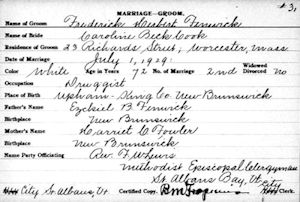 #3,
MARRIAGE—GROOM.
Name of Groom Frederick Herbert Fenwick
Name of Bride Caroline Beck Cook
Residence of Groom 23 Richards Street, Worcester, Mass
Date of Marriage July 1, 1929.
Color White Age in Years 72 No. of Marriage 2nd Widowed Divorced no
Occupation Druggist
Place of Birth Upham - King Co. New Brunswick
Father's Name Ezekiel B. Fenwick
Birthplace New Brunswick
Mother's Name Harriet C Fowler
Birthplace New Brunswick
Name Party Officiating Rev. F.
Methodist Episcopal Clergyman
St. Albans Bay, Vt.
City St Albans, Vt Certified Copy. City Clerk.